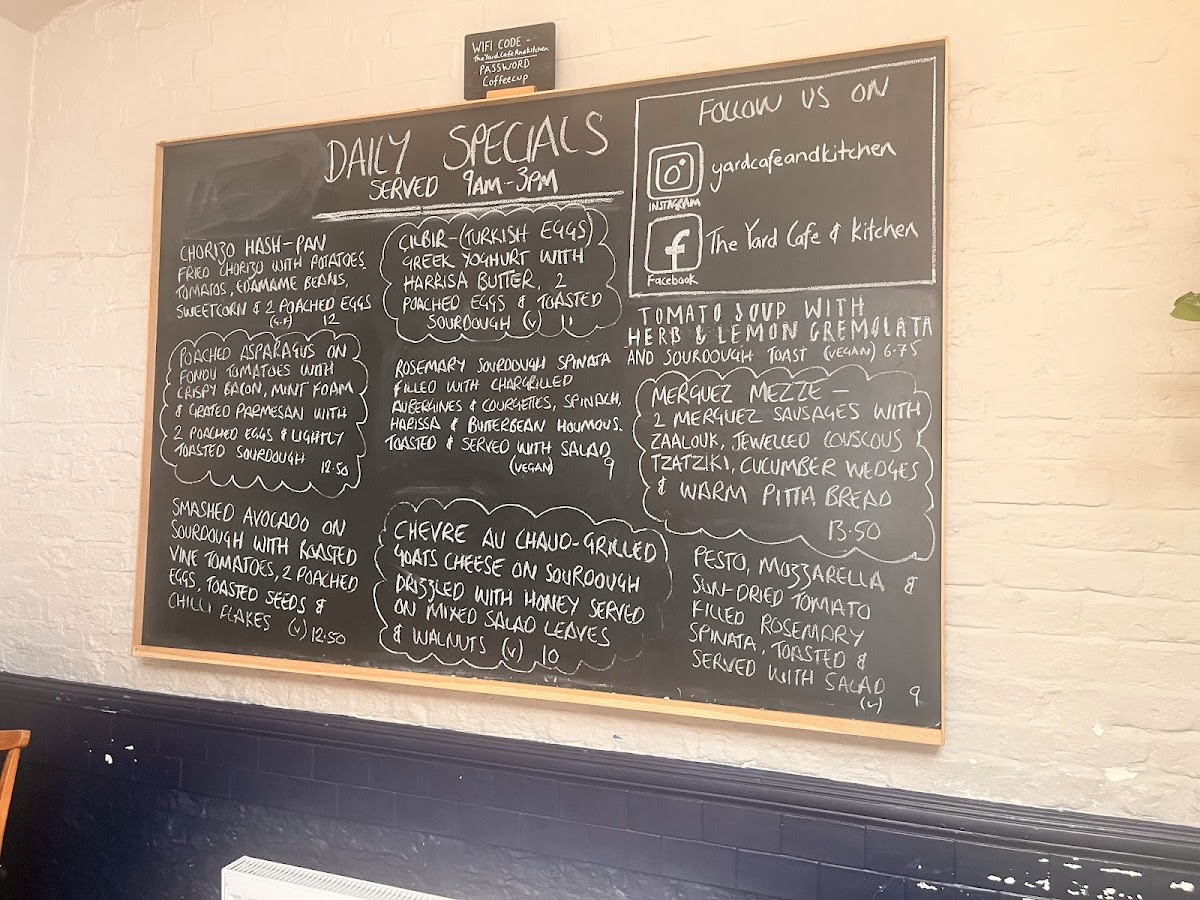 WIFI CODE -
TheYardCafeAndKitchen
PASSWORD
Coffeecup
DAILY SPECIALS
SERVED 9AM-3PM
CHORIZO HASH-PAN
FRIED CHORIZO WITH POTATOES
TOMATOS, EDAMAME BEANS,
SWEETCORN & 2 POACHED EGGS
(G.F) 12
POACHED ASPARAGUS ON
FONDU TOMATOES WITH
CRISPY BACON, MINT FOAM
& GRATED PARMESAN WITH
2 POACHED EGGS & LIGHTLY
TOASTED SOURDOUGH 12.50
SMASHED AVOCADO ON
SOURDOUGH WITH ROASTED
VINE TOMATOES, 2 POACHED
EGGS, TOASTED SEEDS &
CHILLI FLAKES (V) 12.50
CILBIR-(TURKISH EGGS)
GREEK YOGHURT WITH
HARRISA BUTTER, 2
POACHED EGGS & TOASTED
SOURDOUGH (V) 11
ROSEMARY SOURDOUGH SPINATA
FILLED WITH CHARGRILLED
AUBERGINES & COURGETTES, SPINACH,
HARISSA & BUTTERBEAN HOUMOUS.
TOASTED & SERVED WITH SALAD
(VEGAN) 9
CHEVRE AU CHAUD-GRILLED
GOATS CHEESE ON SOURDOUGH
DRIZZLED WITH HONEY SERVED
ON MIXED SALAD LEAVES
& WALNUTS (V) 10
FOLLOW US ON
yardcafeandkitchen
INSTAGRAM
The Yard Cafe & Kitchen
Facebook
TOMATO SOUP WITH
HERB & LEMON GREMOLATA
AND SOURDOUGH TOAST (VEGAN) 6.75
MERGUEZ MEZZE -
2 MERGUEZ SAUSAGES WITH
ZAALOUK, JEWELLED COUSCOUS
TZATZIKI, CUCUMBER WEDGES
& WARM PITTA BREAD
13.50
PESTO, MOZZARELLA &
SUN-DRIED TOMATO
FILLED ROSEMARY
SPINATA, TOASTED &
SERVED WITH SALAD 9
(V)